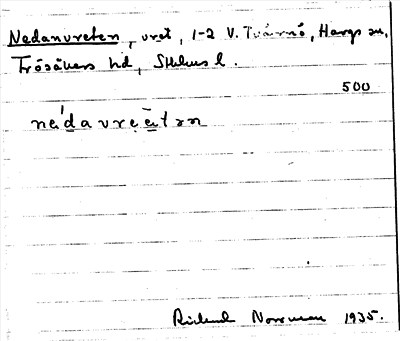 Nedanvreten, vret, 1-2 V. Tvärnö, Hargs sn,
Frösåkers hd, Sthlms l.
500
nedavreetən
Rickard Norrman 1935.